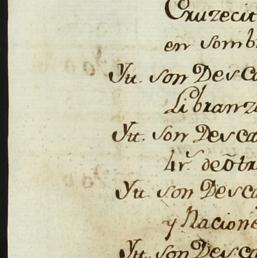 Cruzecit
en somb
Yu. son Desc
Libranz
Yu. son Desca
4r. de otr
Yu. son Desca
y Nacione
Yu. son Desca